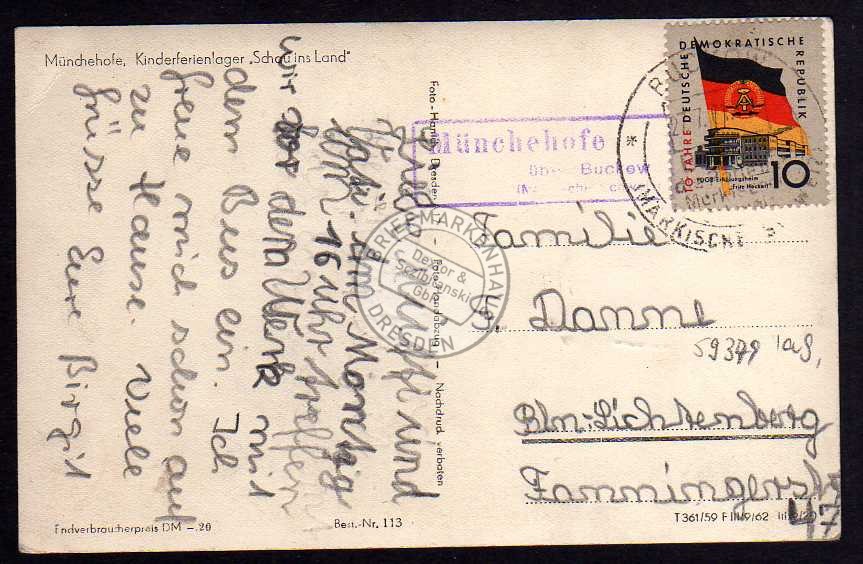 Münchehofe, Kinderferienlager „Schau ins Land"
Foto-Handabzug - Nachdruck verboten
Münchehofe
über Buckow
BRIEFMARKENHAUS
Dexter &
GbR
DRESDEN
10 JAHRE DEUTSCHE DEMOKRATISCHE REPUBLIK
FDGB-Erholungsheim
"Fritz Heckert" 10
(MÄRKISCHE
und
am Montag
um 16 Uhr treffen
wir vor dem Werk mit
dem Bus ein. Ich
freue mich schon auf
zu Hause. Viele
Grüsse Eure Birgit
Familie
S. Damm
59379 
Bln.-Lichtenberg
Fanningerstr
47
Endverbraucherpreis DM -.20
Best.-Nr. 113
T 361/59 F III/9/62